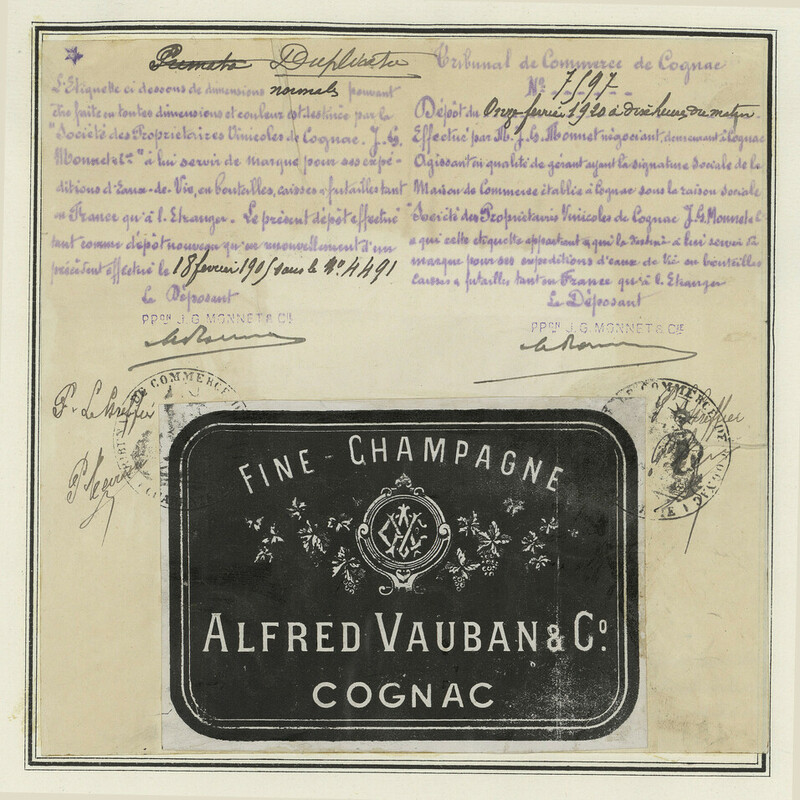 Primata Duplicata
L'Etiquette ci dessous de dimensions normales pouvant
être faite en toutes dimensions et couleur est destinée par la
"Société des Propriétaires Vinicoles de Cognac. J.G.
Monnet & Cie" à lui servir de marque pour ses expé-
ditions d'Eaux-de-Vie, en bouteilles, caisses & futailles tant
en France qu'à l'Etranger. Le présent dépôt effectué
tant comme dépôt nouveau qu'en renouvellement d'un
précédent effectué le 18 fevrier 1905 sous le No. 4491
Le Déposant
PPON J.G. MONNET & CIE
Tribunal de Commerce de Cognac
No. 7597
Dépôt du Onze fevrier 1920 à dix heures du matin
Effectué par M. J.G. Monnet négociant, demeurant à Cognac
Agissant en qualité de gérant ayant la signature sociale de la
Maison de Commerce établie à Cognac sous la raison sociale
"Société des Propriétaires Vinicoles de Cognac J.G. Monnet & Co
a qui cette etiquette appartient & qui la destine à lui servir de
marque pour ses expeditions d'eaux de Vie en bouteilles
caisses & futailles tant en France qu'à l'Etranger
Le Déposant
PPON J.G. MONNET & CIE
P. Le Greffier
DE COMMERCE DE
COMMERCE DE COGNAC
FINE - CHAMPAGNE
ALFRED VAUBAN & Co.
COGNAC